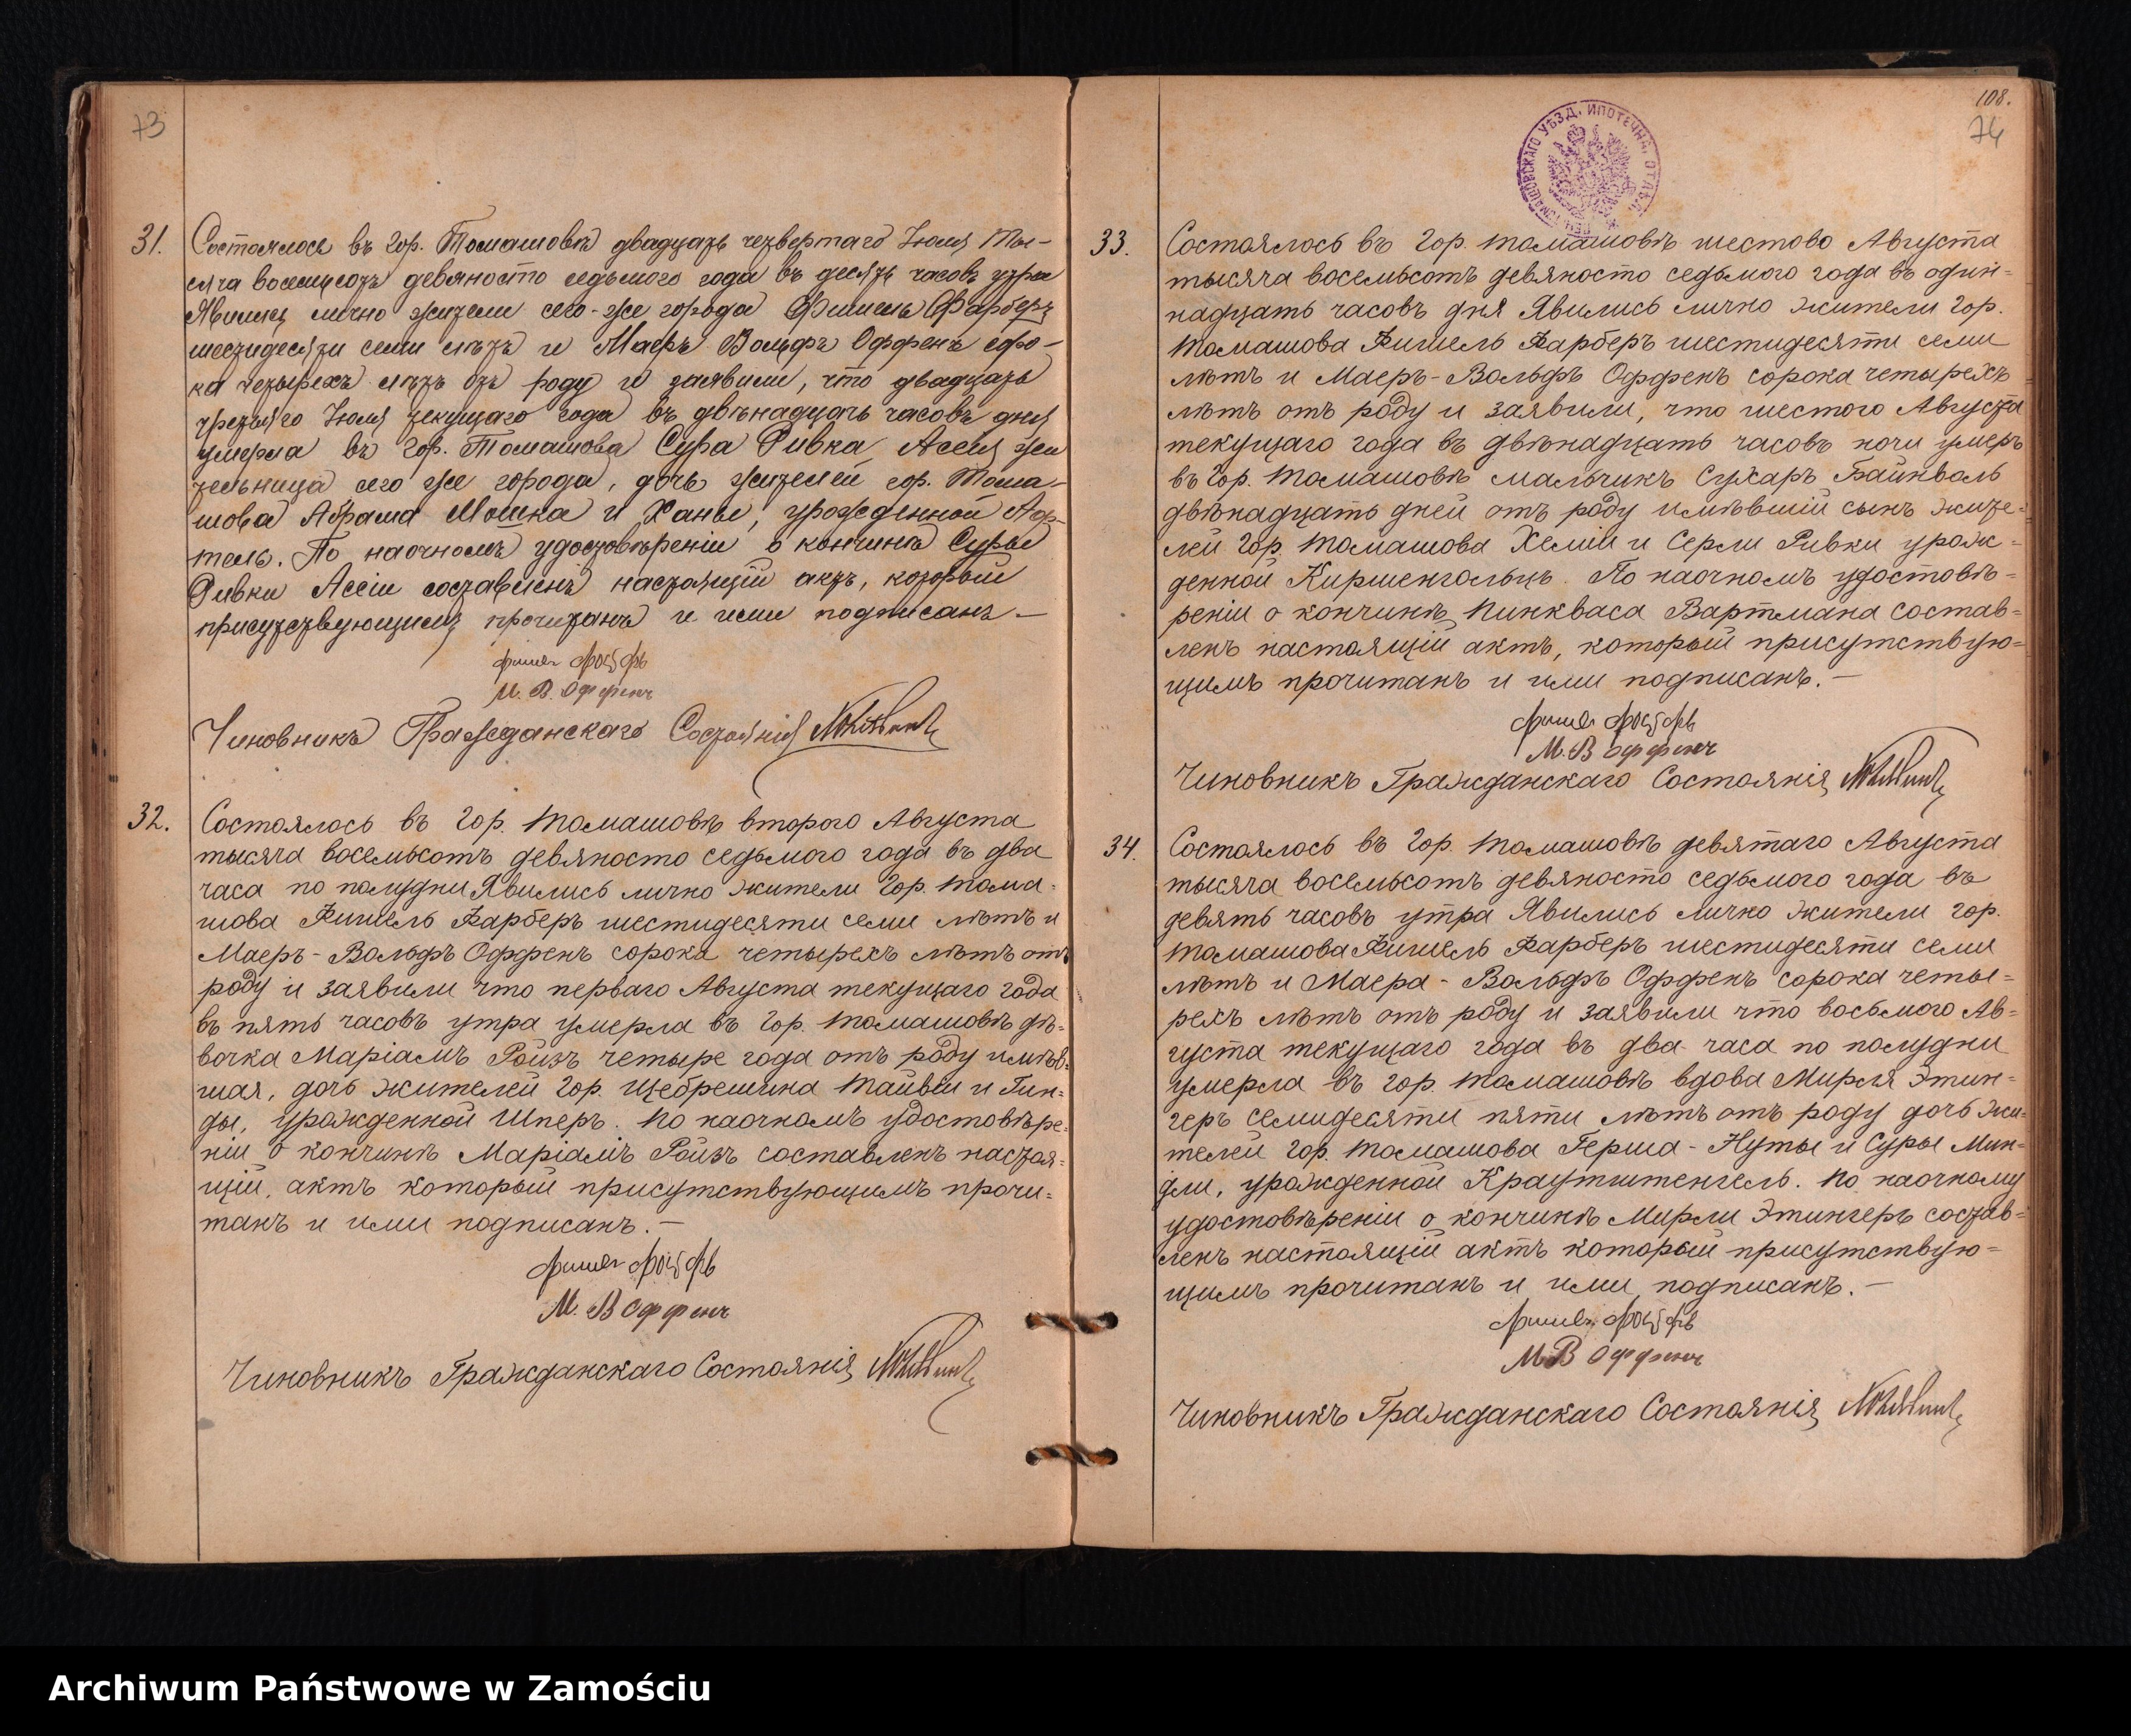 73
31.
Состоялось въ гор. Томашовѣ двадцать четвертаго Іюля ты-
сяча восемьсотъ девяносто седьмого года въ десять часовъ утра
Явились лично жители сего-же города Фишель Фарберъ
шестидесяти семи лѣтъ и Маеръ Вольфъ Оффенъ соро-
ка четырехъ лѣтъ отъ роду и заявили, что двадцать
третьяго Іюля текущаго года въ двѣнадцать часовъ дня
умерла въ гор. Томашова Сура Ривка Ассія жи
тельница сего же города, дочь жителей гор. Тома-
шова Абрама Мошка и Ханы, урожденной
тель. По наочномъ удостовѣреніи о кончинѣ Суры
Ривки Ассіи составленъ настоящій актъ, который
присутствующимъ прочитанъ и ими подписанъ —
М. В. Оффенъ
Чиновникъ Гражданскаго Состоянія
32.
Состоялось въ гор. Томашовѣ второго Августа
тысяча восемьсотъ девяносто седьмого года въ два
часа по полудни Явились лично жители гор. Тома=
шова Фишель Фарберъ шестидесяти семи лѣтъ и
Маеръ-Вольфъ Оффенъ сорока четырехъ лѣтъ отъ
роду и заявили что перваго Августа текущаго года
въ пять часовъ утра умерла въ гор. Томашовѣ дѣ=
вочка Маріамъ Ройзъ четыре года отъ роду имѣв=
шая, дочь жителей гор. Щебрешина Тайвеи и Гин=
ды, урожденной Шперъ. По наочномъ удостовѣре=
ніи о кончинѣ Маріамъ Ройзъ составленъ настоя=
щій, актъ который присутствующимъ прочи=
танъ и ими подписанъ. —
М. В Оффенъ
Чиновникъ Гражданскаго Состоянія
108.
74
ТОМАШОВСКАГО УѢЗД. ИПОТЕЧНА. ОТДѢЛ.
33.
Состоялось въ гор. Томашовѣ шестово Августа
тысяча восемьсотъ девяносто седьмого года въ один=
надцать часовъ дня Явились лично жители гор.
Томашова Фишель Фарберъ шестидесяти семи
лѣтъ и Маеръ-Вольфъ Оффенъ сорока четырехъ
лѣтъ отъ роду и заявили, что шестого Августа
текущаго года въ двѣнадцать часовъ ночи умеръ
въ гор. Томашовѣ мальчикъ Сухаръ Байнволь
двѣнадцать дней отъ роду имѣвшій сынъ жите=
лей гор. Томашова Хеміи и Серли Ривки урож=
денной Киршенгольцъ. По наочномъ удостовѣ=
реніи о кончинѣ Пинкваса Вартмана состав=
ленъ настоящій актъ, который присутствую=
щимъ прочитанъ и ими подписанъ. —
М. В Оффенъ
Чиновникъ Гражданскаго Состоянія
34.
Состоялось въ гор. Томашовѣ девятаго Августа
тысяча восемьсотъ девяносто седьмого года въ
девять часовъ утра Явились лично жители гор.
Томашова Фишель Фарберъ шестидесяти семи
лѣтъ и Маера-Вольфъ Оффенъ сорока четы=
рехъ лѣтъ отъ роду и заявили что восьмого Ав=
густа текущаго года въ два часа по полудни
умерла въ гор. Томашовѣ вдова Мирля Этин=
геръ семидесяти пяти лѣтъ отъ роду дочь жи=
телей гор. Томашова Герша-Нуты и Суры Мин=
дли, урожденной Краутштенгель. По наочному
удостовѣреніи о кончинѣ Мирли Этингеръ состав=
ленъ настоящій актъ который присутствую=
щимъ прочитанъ и ими подписанъ. —
М В Оффенъ
Чиновникъ Гражданскаго Состоянія
Archiwum Państwowe w Zamościu